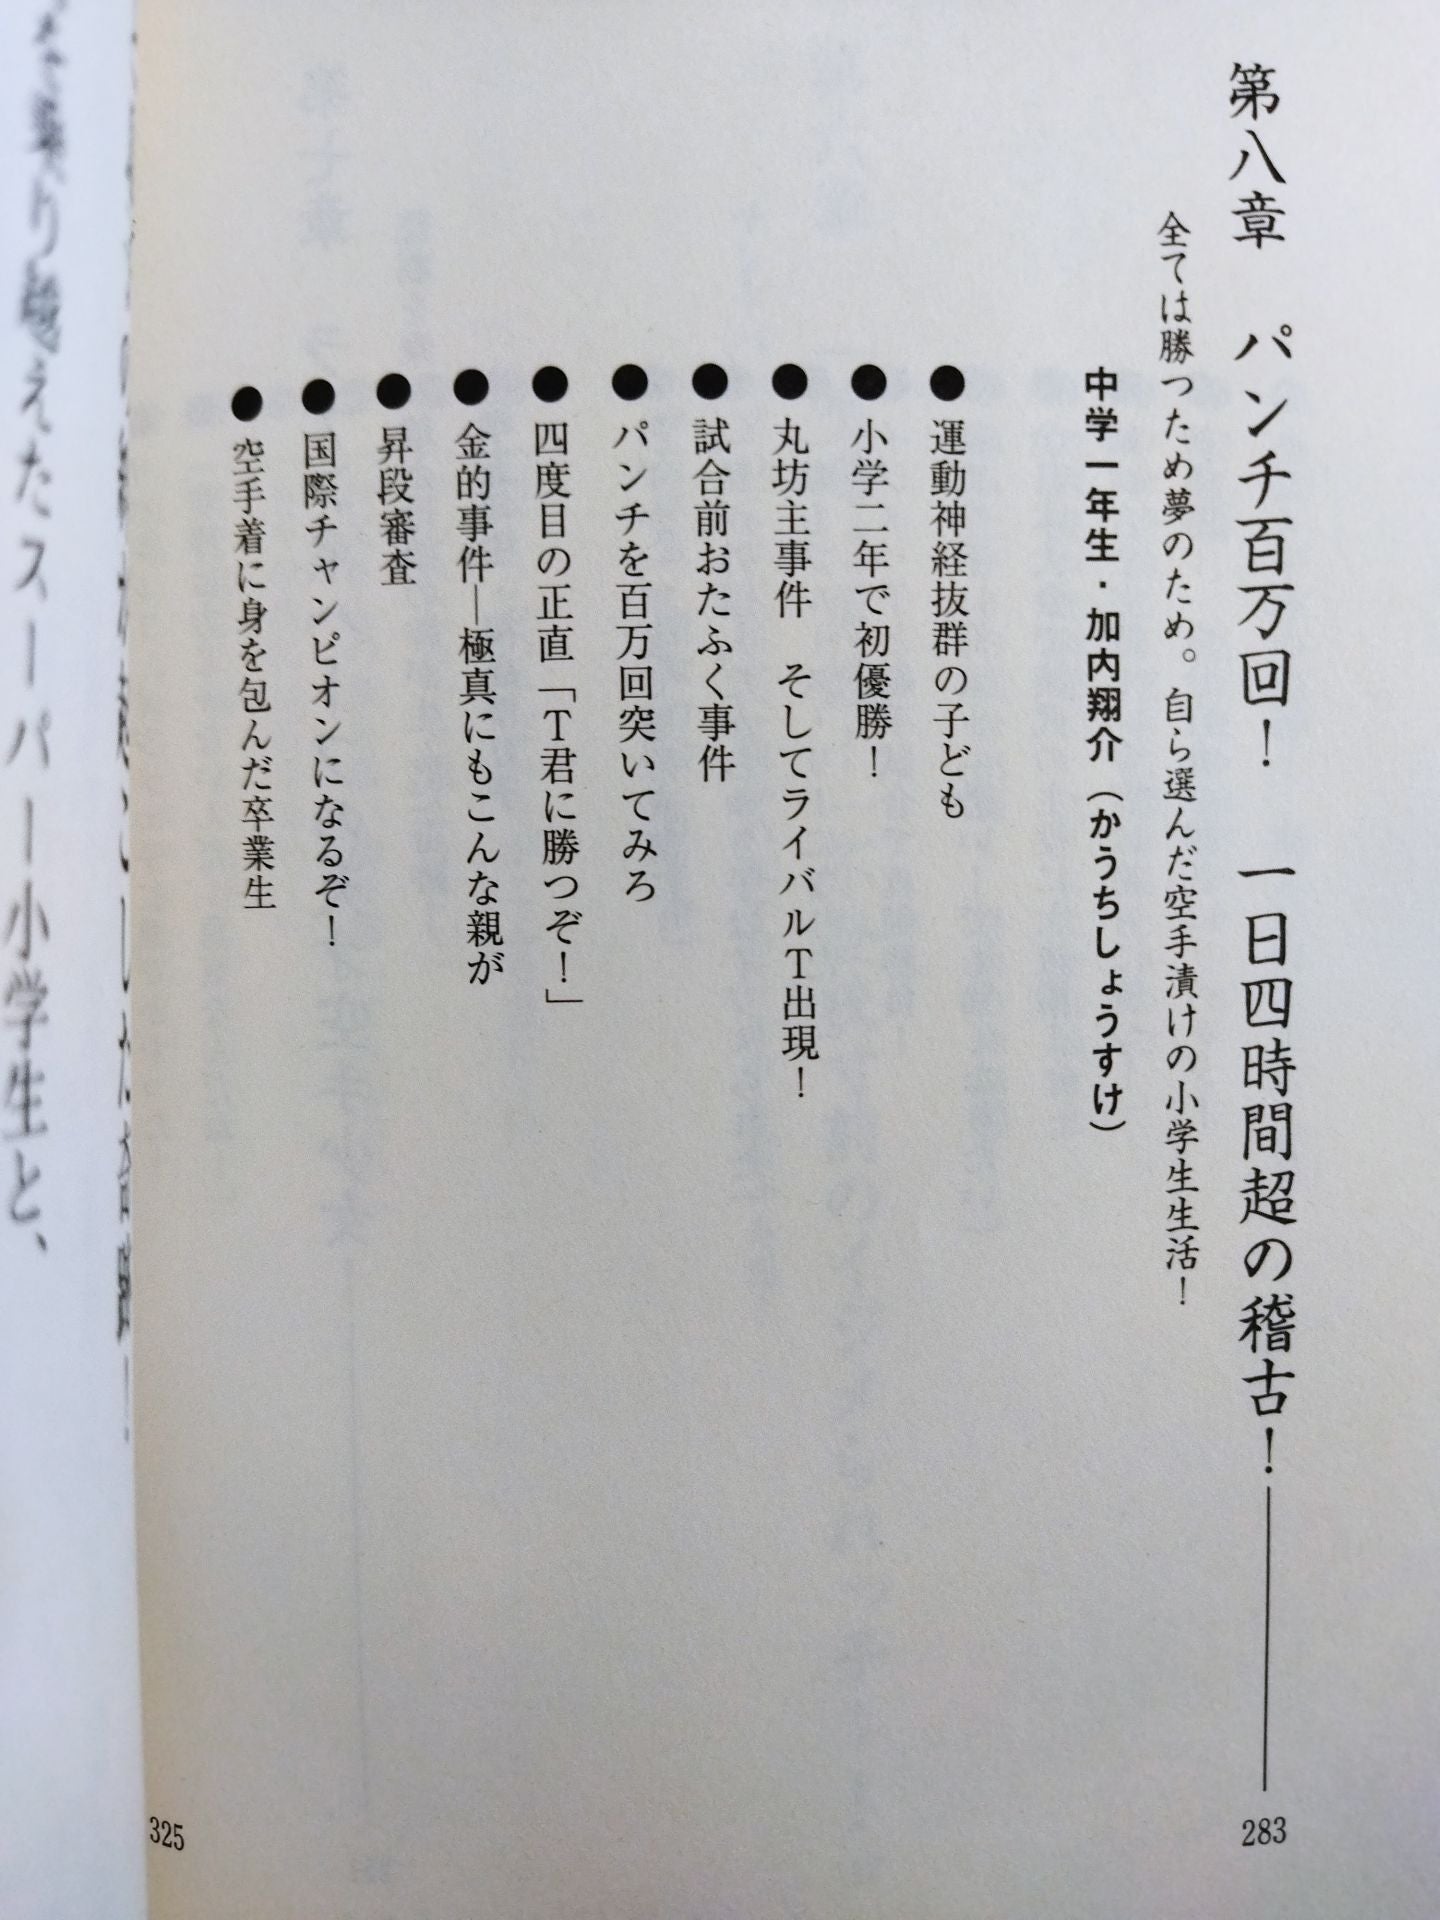 第八章　パンチ百万回！　一日四時間超の稽古！ 283
全ては勝つため夢のため。自ら選んだ空手漬けの小学生生活！
中学一年生・加内翔介（かうちしょうすけ）
●運動神経抜群の子ども
●小学二年で初優勝！
●丸坊主事件　そしてライバルＴ出現！
●試合前おたふく事件
●パンチを百万回突いてみろ
●四度目の正直「Ｔ君に勝つぞ！」
●金的事件―極真にもこんな親が
●昇段審査
●国際チャンピオンになるぞ！
●空手着に身を包んだ卒業生
325
乗り越えたスーパー小学生と、